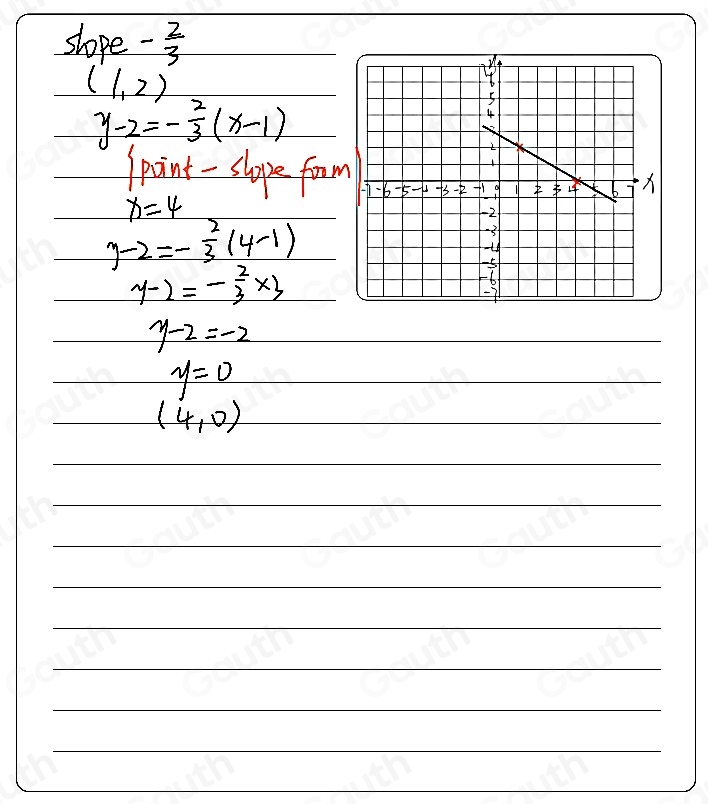 slope - 2/3
(1,2)
y-2=-2/3(x-1)
{point-slope form}
x=4
y-2=-2/3(4-1)
y-2=-2/3×3
y-2=-2
y=0
(4,0)
y
5
4
2
1
-7 -6 -5 -4 -3 -2 -1 0 1 2 3 4 5 6 7 x
-2
-3
-4
-5
-6
-7
Gauth